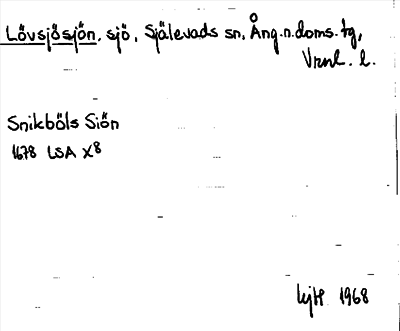 Lövsjösjön, sjö, Själevads sn, Ång.n.doms.tg,
Vrnl. l.
Snikböls Siön
1678 LSA X8
1968